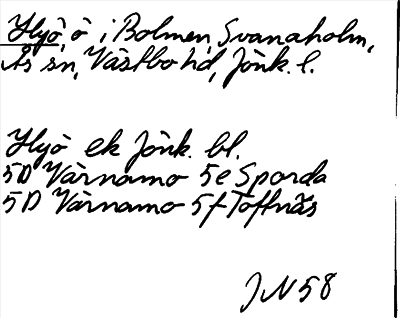 Hyö, ö i Bolmen, Svanaholm,
Ås sn, Västbo hd, Jönk. l.
Hyö ek Jönk. bl.
5D Värnamo 5e Sporda
5D Värnamo 5f Toftnäs
JN 58